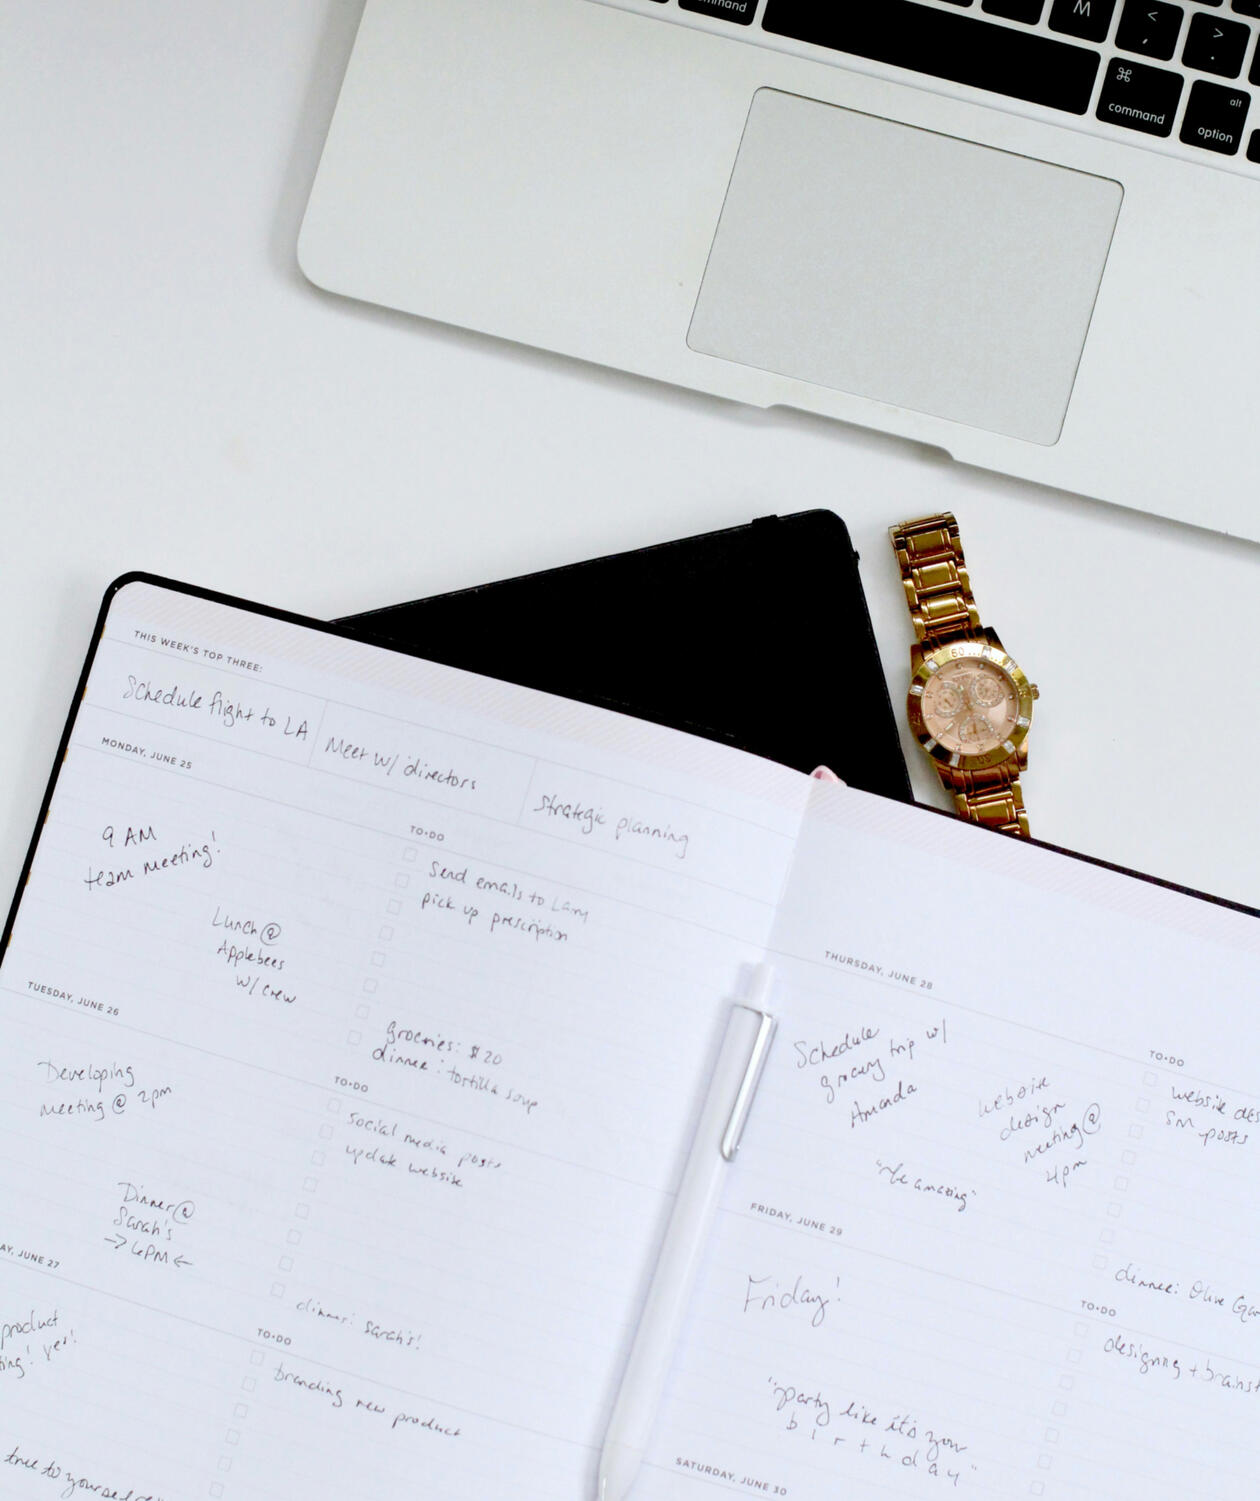 command
M
<
,
>
.
⌘
command
alt
option
60
THIS WEEK'S TOP THREE:
Schedule flight to LA
Meet w/ directors
Strategic planning
MONDAY, JUNE 25
9 AM
team meeting!
Lunch @
Applebees
w/ crew
TO•DO
Send emails to Larry
pick up prescription
groceries: $20
dinner: tortilla soup
TUESDAY, JUNE 26
Developing
meeting @ 2pm
Dinner @
Sarah's
→ 6PM ←
TO•DO
social media posts
update website
dinner: Sarah's!
AY, JUNE 27
product
ting! yes!
true to yourself
TO•DO
branding new product
THURSDAY, JUNE 28
Schedule
grocery trip w/
Amanda
website
design
meeting @
4pm
"be amazing"
TO•DO
website des
SM posts
dinner: Olive Gar
FRIDAY, JUNE 29
Friday!
"party like it's your
birthday"
TO•DO
designing + brainst
SATURDAY, JUNE 30